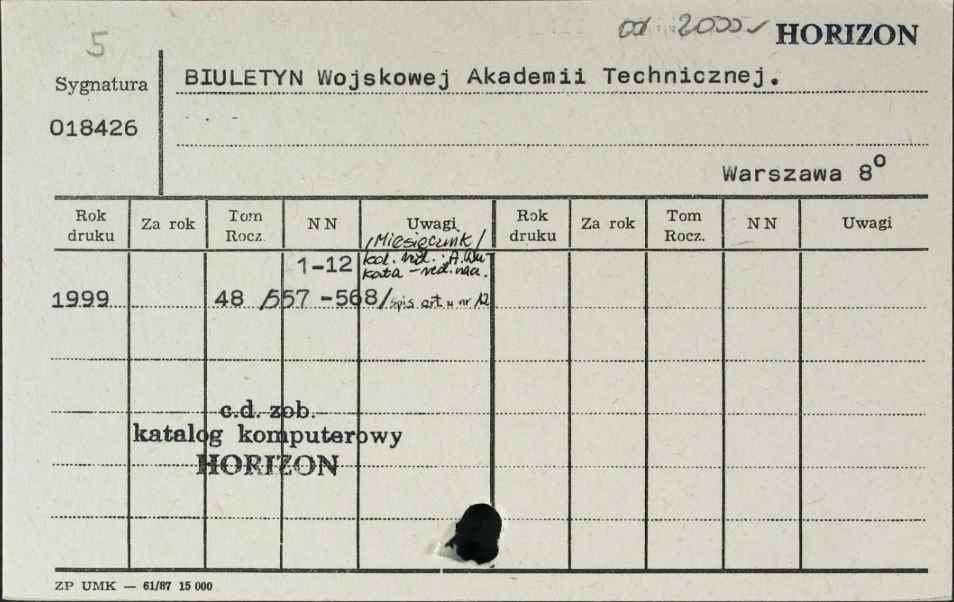 5
od 2000 HORIZON
Sygnatura
BIULETYN Wojskowej Akademii Technicznej.
018426
Warszawa 8°
Rok druku Za rok Tom Rocz. NN Uwagi Rok druku Za rok Tom Rocz. NN Uwagi
/Miesięcznik/
1-12 kol. red.: A.
kata - red. nacz.
1999 48 /557 -568/ spis art. w nr 12
c.d. zob.
katalog komputerowy
HORIZON
ZP UMK — 61/87 15 000